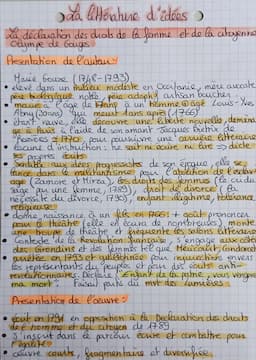 La littérature d'idées
La déclaration des droits de la femme et de la citoyenne
Olympe de Gouges
Présentation de l'auteur :
Marie Gouze (1748-1793)
élevé dans un milieu modeste en Occitanie, mère
père biologique noble, père adoptif artisan boucher
mariée à l'âge de ans à un homme âgé Louis-Yves
Aubry (1765), qui meurt 1 an après (1766)
étant veuve, elle découvre une liberté nouvelle,
à Paris à l'aide de son amant Jacques Biétrix de
Rozières 1770, pour poursuivre une carrière littéraire
aucune d'instruction : ne sait ni écrire ni lire => dicte
ses propres écrits
sensible aux idées progressistes de son époque, elle se
lance dans le militantisme pour l'abolition de l'esclav-
age (Zamore et Mirza), les droits des femmes
1789), droit de divorce (la
nécessité du divorce, 1790), enfant illégitime, tolérance
religieuse
donne naissance à un fils en 1766 + goût prononcé
pour le théâtre (elle en écrira de nombreuses), monte
une de théâtre et fréquente les salons littéraires
Contexte de la Révolution française, s'engage aux côtés
des Girondins et des femmes tel que Méricourt, Condorcet
arrêtée en 1793 et guillotinée pour envers
les représentants du peuple et pour ses écrits anti-
révolutionnaires. Déclare : "Enfants de la patrie, vous vengerez
ma mort". Faisait partie du mvt des Lumières
Présentation de l'oeuvre :
écrit en 1791 en opposition à la Déclaration des droits
de l'homme et du citoyen de 1789
S'inscrit dans le parcours écrire et combattre pour
l'égalité
oeuvre courte, fragmentaire et diversifiée